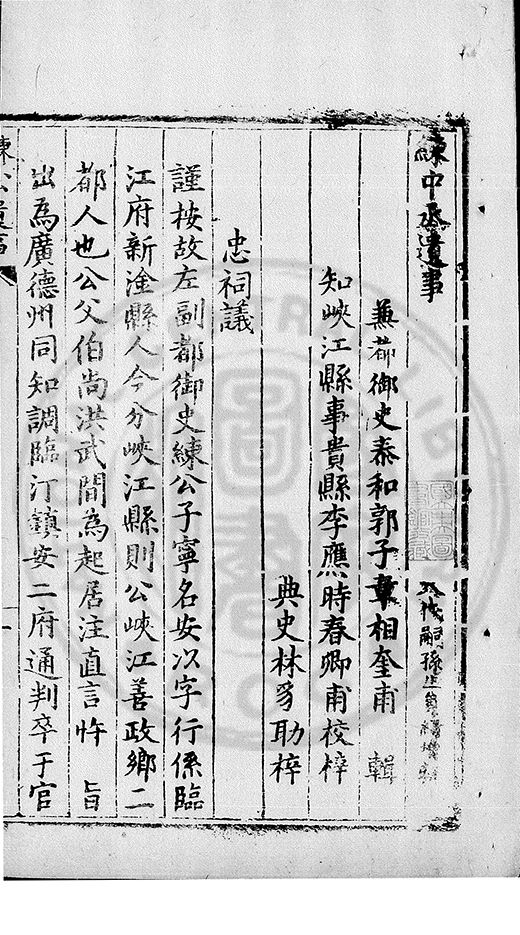 練中丞遺事
兼都御史泰和郭子章相奎甫 輯
知峽江縣事貴縣李應時春卿甫校梓
典史林 助梓
忠祠議
謹按故左副都御史練公子寧名安以字行係臨
江府新淦縣人今分峽江縣則公峽江善政鄉二
都人也公父伯尚洪武間為起居注直言忤 旨
出為廣德州同知調臨汀鎮安二府通判卒于官